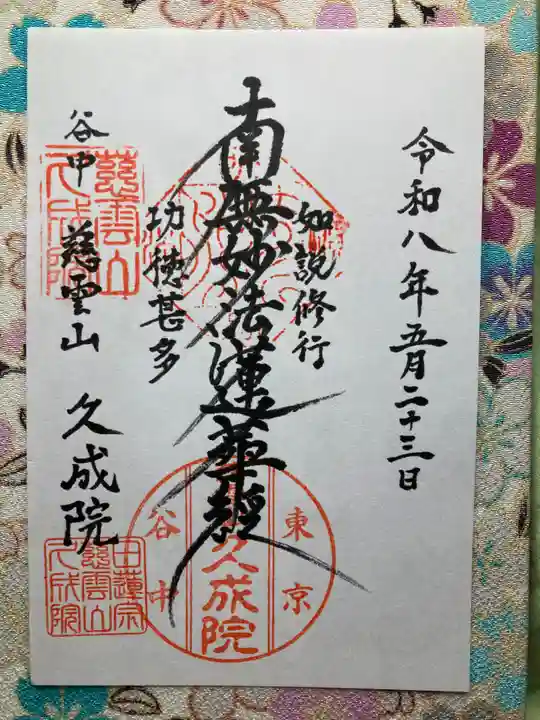 令和八年五月二十三日
如説修行
南無妙法蓮華經
功徳甚多
谷中 慈雲山 久成院
慈雲山
久成院
東京
久成院
谷中
日蓮宗
慈雲山
久成院